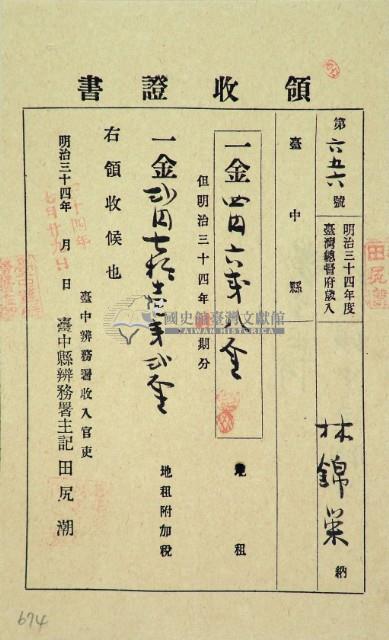 領收證書
第六五六號
明治三十四年度
臺灣總督府歲入
林錦榮納
臺中縣
一金四円六錢八厘
地租
但明治三十四年 期分
一金弐円七拾 錢弐厘
地租附加稅
右領收候也
臺中辨務署收入官吏
明治三十四年 月 日
臺中縣辨務署主記田尻潮
國史館臺灣文獻館
TAIWAN HISTORICA
674